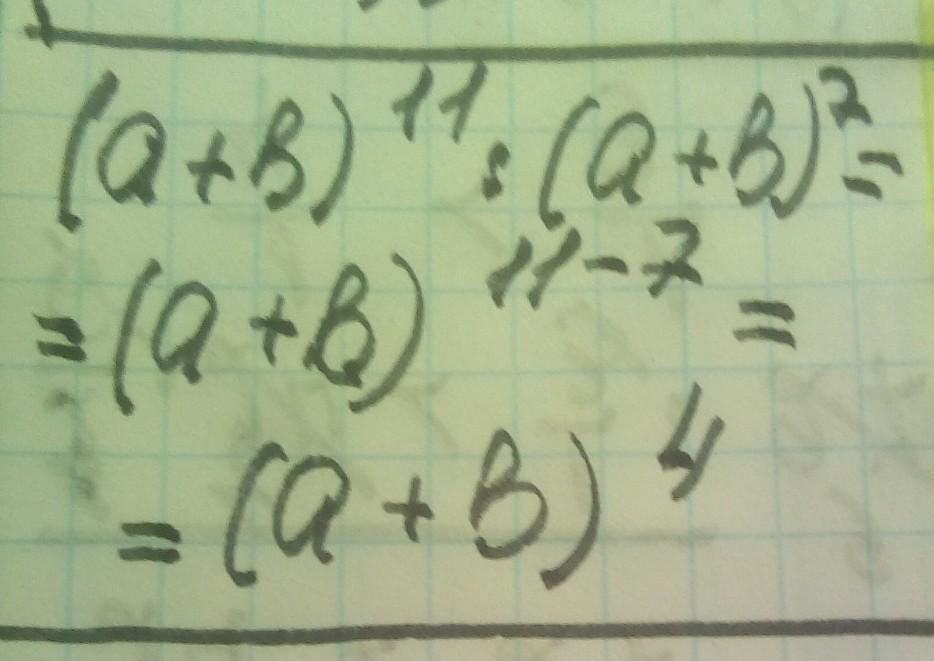 (a+b)¹¹:(a+b)⁷=
=(a+b)¹¹⁻⁷=
=(a+b)⁴